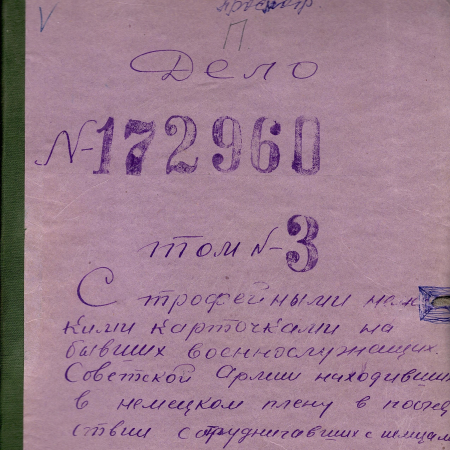 просмотр.
V
П
Дело
N-172960
том N-3
С трофейными нем
кими карточками на
бывших военнослужащих.
Советской Армии находивши
в немецком плену в после
ствии сотрудничавших с немцам